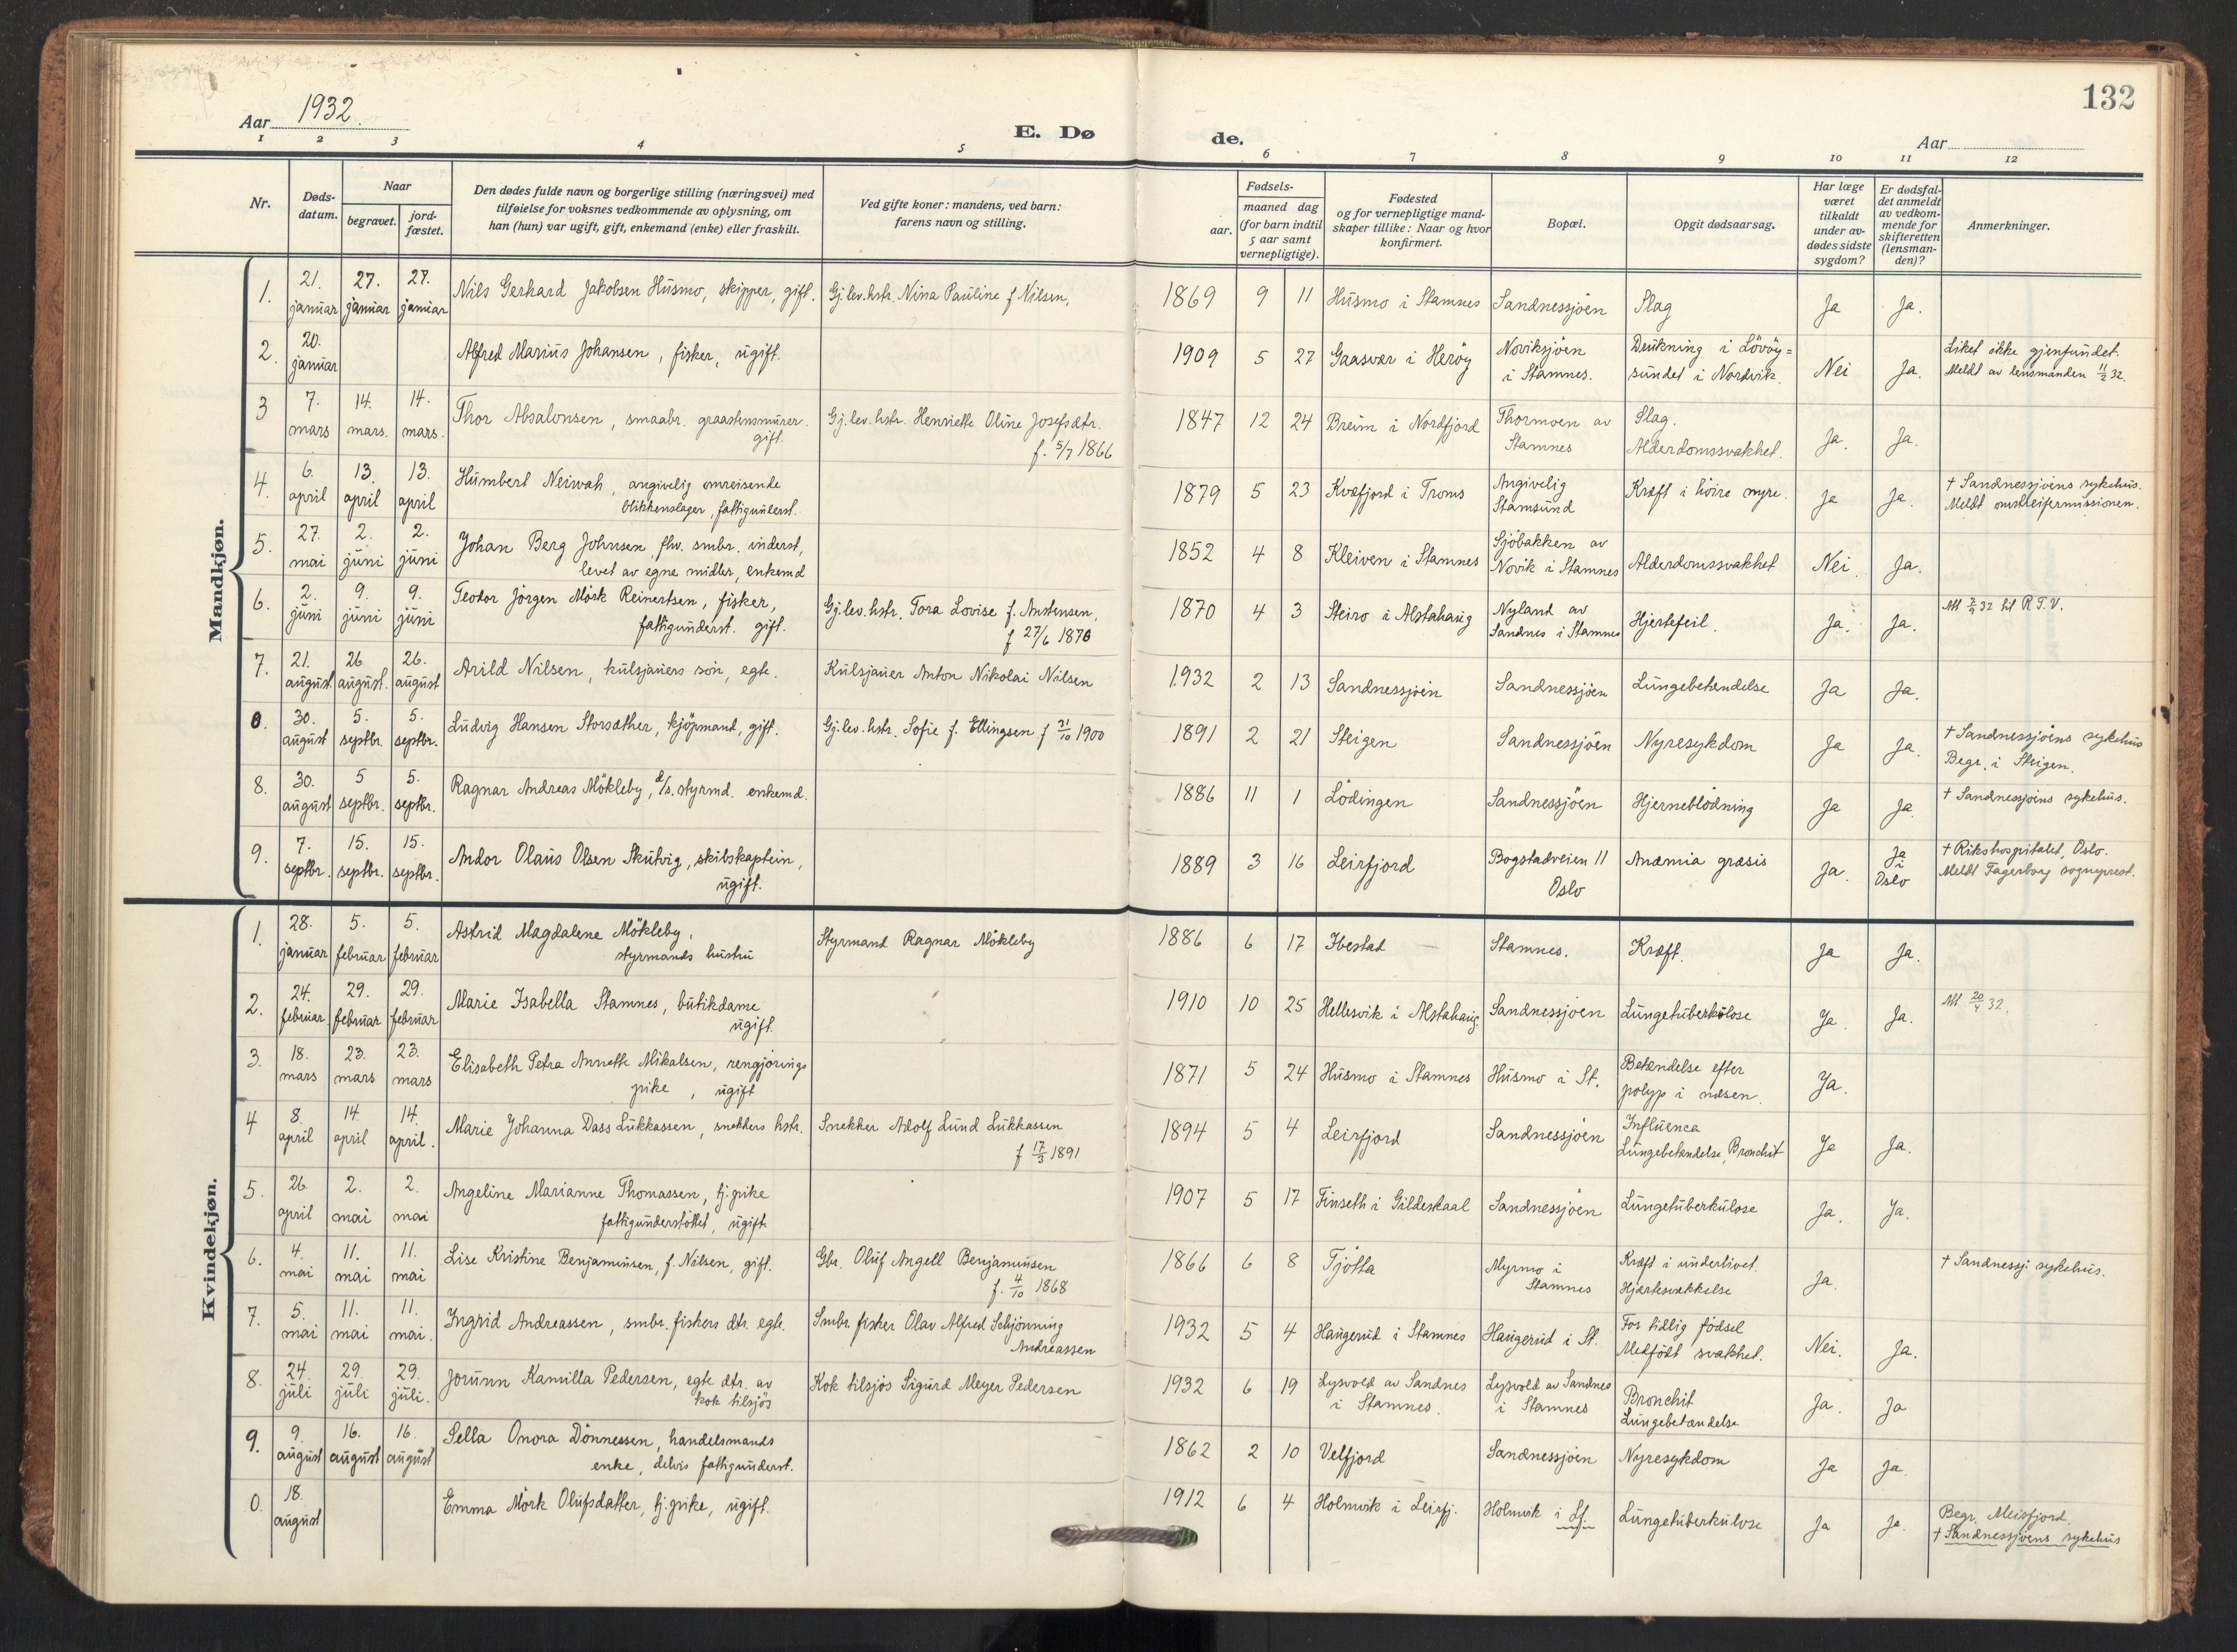 132
Aar 1932.
E. Dø
de.
Aar
1 2 3 4 5 6 7 8 9 10 11 12
Nr.
Døds-
datum.
Naar
begravet.
jord-
fæstet.
Den dødes fulde navn og borgerlige stilling (næringsvei) med
tilføielse for voksnes vedkommende av oplysning, om
han (hun) var ugift, gift, enkemand (enke) eller fraskilt.
Ved gifte koner: mandens, ved barn:
farens navn og stilling.
Fødsels-
aar.
maaned dag
(for barn indtil
5 aar samt
vernepligtige).
Fødested
og for vernepligtige mand-
skaper tillike: Naar og hvor
konfirmert.
Bopæl.
Opgit dødsaarsag.
Har læge
været
tilkaldt
under av-
dødes sidste
sygdom?
Er dødsfal-
det anmeldt
av vedkom-
mende for
skifteretten
(lensman-
den)?
Anmerkninger.
Mandkjøn.
1. 21. januar 27. januar 27. januar Nils Gerhard Jakobsen Husmo, skipper, gift. Gj. lev. hstr. Nina Pauline f Nilsen. 1869 9 11 Husmo i Stamnes Sandnessjøen Slag Ja Ja.
2. 20. januar Alfred Marius Johansen, fisker, ugift. 1909 5 27 Gaasvær i Herøy Noviksjøen i Stamnes. Drukning i Lövöy=
sundet i Nordvik. Nei Ja. Liket ikke gjenfundet.
Meldt av lensmanden 11/2 32.
3 7. mars 14. mars. 14. mars. Thor Absalonsen, smaabr. graastensmurer.
gift. Gj. lev. hstr. Henriette Oline Josefsdtr.
f. 5/7 1866 1847 12 24 Breim i Nordfjord Thormoen av
Stamnes Slag.
Alderdomssvakhet. Ja. Ja.
4. 6. april 13. april 13. april Humbert Neiwah, angivelig omreisende
blikkenslager, fattigunderst. 1879 5 23 Kvæfjord i Troms Angivelig
Stamsund Kræft i höire nyre. Ja Ja. † Sandnessjöens sykehus.
Meldt omstreifermissionen.
5. 27. mai 2. juni 2. juni Johan Berg Johnsen, fhv. smbr. inderst,
levet av egne midler, enkemd 1852 4 8 Kleiven i Stamnes Sjöbakken av
Novik i Stamnes Alderdomssvakhet Nei. Ja.
6. 2. juni 9. juni 9. juni Teodor Jörgen Mörk Reinertsen, fisker,
fattigunderst. gift. Gj. lev. hstr. Tora Lovise f. Anstensen,
f 27/6 1870 1870 4 3 Steiro i Alstahaug Nyland av
Sandnes i Stamnes Hjertefeil. Ja. Ja. 32 til R.T.V.
7. 21. august 26 august. 26. august Arild Nilsen, kulsjauers sön, egte. Kulsjauer Anton Nikolai Nilsen 1932 2 13 Sandnessjöen Sandnessjöen Lungebetændelse Ja Ja.
0. 30. august 5. septbr. 5. septbr. Ludvig Hansen Storsæther, kjöpmand, gift. Gj. lev. hstr. Sofie f. Ellingsen f 31/10 1900 1891 2 21 Steigen Sandnessjöen Nyresykdom Ja Ja. † Sandnessjöens sykehus
Begr. i Steigen.
8. 30. august 5 septbr. 5. septbr. Ragnar Andreas Mökleby, d/s. styrmd. enkemd. 1886 11 1 Lödingen Sandnessjöen Hjerneblödning Ja Ja. † Sandnessjöens sykehus.
9. 7. septbr. 15. septbr. 15. septbr. Andor Olaus Olsen Skutvig, skibskaptein,
ugift. 1889 3 16 Leirfjord Bogstadveien 11
Oslo Anæmia græsis Ja. Ja i Oslo † Rikshospitalet, Oslo.
Meldt Fagerborg sogneprest.
Kvindekjøn.
1. 28. januar 5. februar 5. februar Astrid Magdalene Mökleby,
styrmands hustru Styrmand Ragnar Mökleby 1886 6 17 Ibestad Stamnes. Kræft. Ja Ja.
2. 24. februar 29. februar 29. februar Marie Isabella Stamnes, butikdame
ugift. 1910 10 25 Hellesvik i Alstahaug. Sandnessjöen Lungetuberkulose Ja. Ja. 20/4 32.
3. 18. mars 23. mars 23. mars Elisabeth Petra Annette Mikalsen, rengjörings
pike, ugift 1871 5 24 Husmo i Stamnes Husmo i St. Betændelse efter
polyp i næsen. Ja.
4 8. april 14. april 14. april. Marie Johanna Dass Lukkassen, snekkers hstr. Snekker Adolf Lund Lukkassen
f 17/3 1891 1894 5 4 Leirfjord Sandnessjöen Influenca
Lungebetændelse, Bronchit Ja Ja.
5. 26. april 2. mai 2. mai Angeline Marianne Thomassen, tj. pike
fattigunderstöttet, ugift. 1907 5 17 Finseth i Gildeskaal Sandnessjöen Lungetuberkulose Ja. Ja.
6. 4. mai 11. mai 11. mai Lise Kristine Benjaminsen, f. Nilsen, gift. Gbr. Oluf Angell Benjaminsen
f. 4/10 1868 1866 6 8 Tjötta Myrmo i
Stamnes Kræft i underlivet.
Hjertesvækkelse Ja. † Sandnessj. sykehus.
7. 5. mai 11. mai 11. mai. Ingrid Andreassen, smbr. fiskers dtr. egte. Smbr. fisker Olav Alfred Schjönning
Andreassen 1932 5 4 Haugerud i Stamnes Haugerud i St. For tidlig födsel
Medfödt svakhet. Nei. Ja.
8. 24. juli 29. juli 29. juli. Jorunn Kamilla Pedersen, egte dtr. av
kok tilsjös Kok tilsjös Sigurd Meyer Pedersen 1932 6 19 Lysvold av Sandnes
i Stamnes. Lysvold av Sandnes
i Stamnes Bronchit
Lungebetændelse Ja. Ja
9. 9. august 16. august 16. august Sella Onora Dönnessen, handelsmands
enke, delvis fattigunderst. 1862 2 10 Velfjord Sandnessjöen Nyresykdom Ja Ja.
0. 18. august Emma Mörk Olufsdatter, tj. pike, ugift. 1912 6 4 Holmvik i Leirfj. Holmvik i Lf. Lungetuberkulose Ja Ja. Begr. Meisfjord.
† Sandnessjöens sykehus